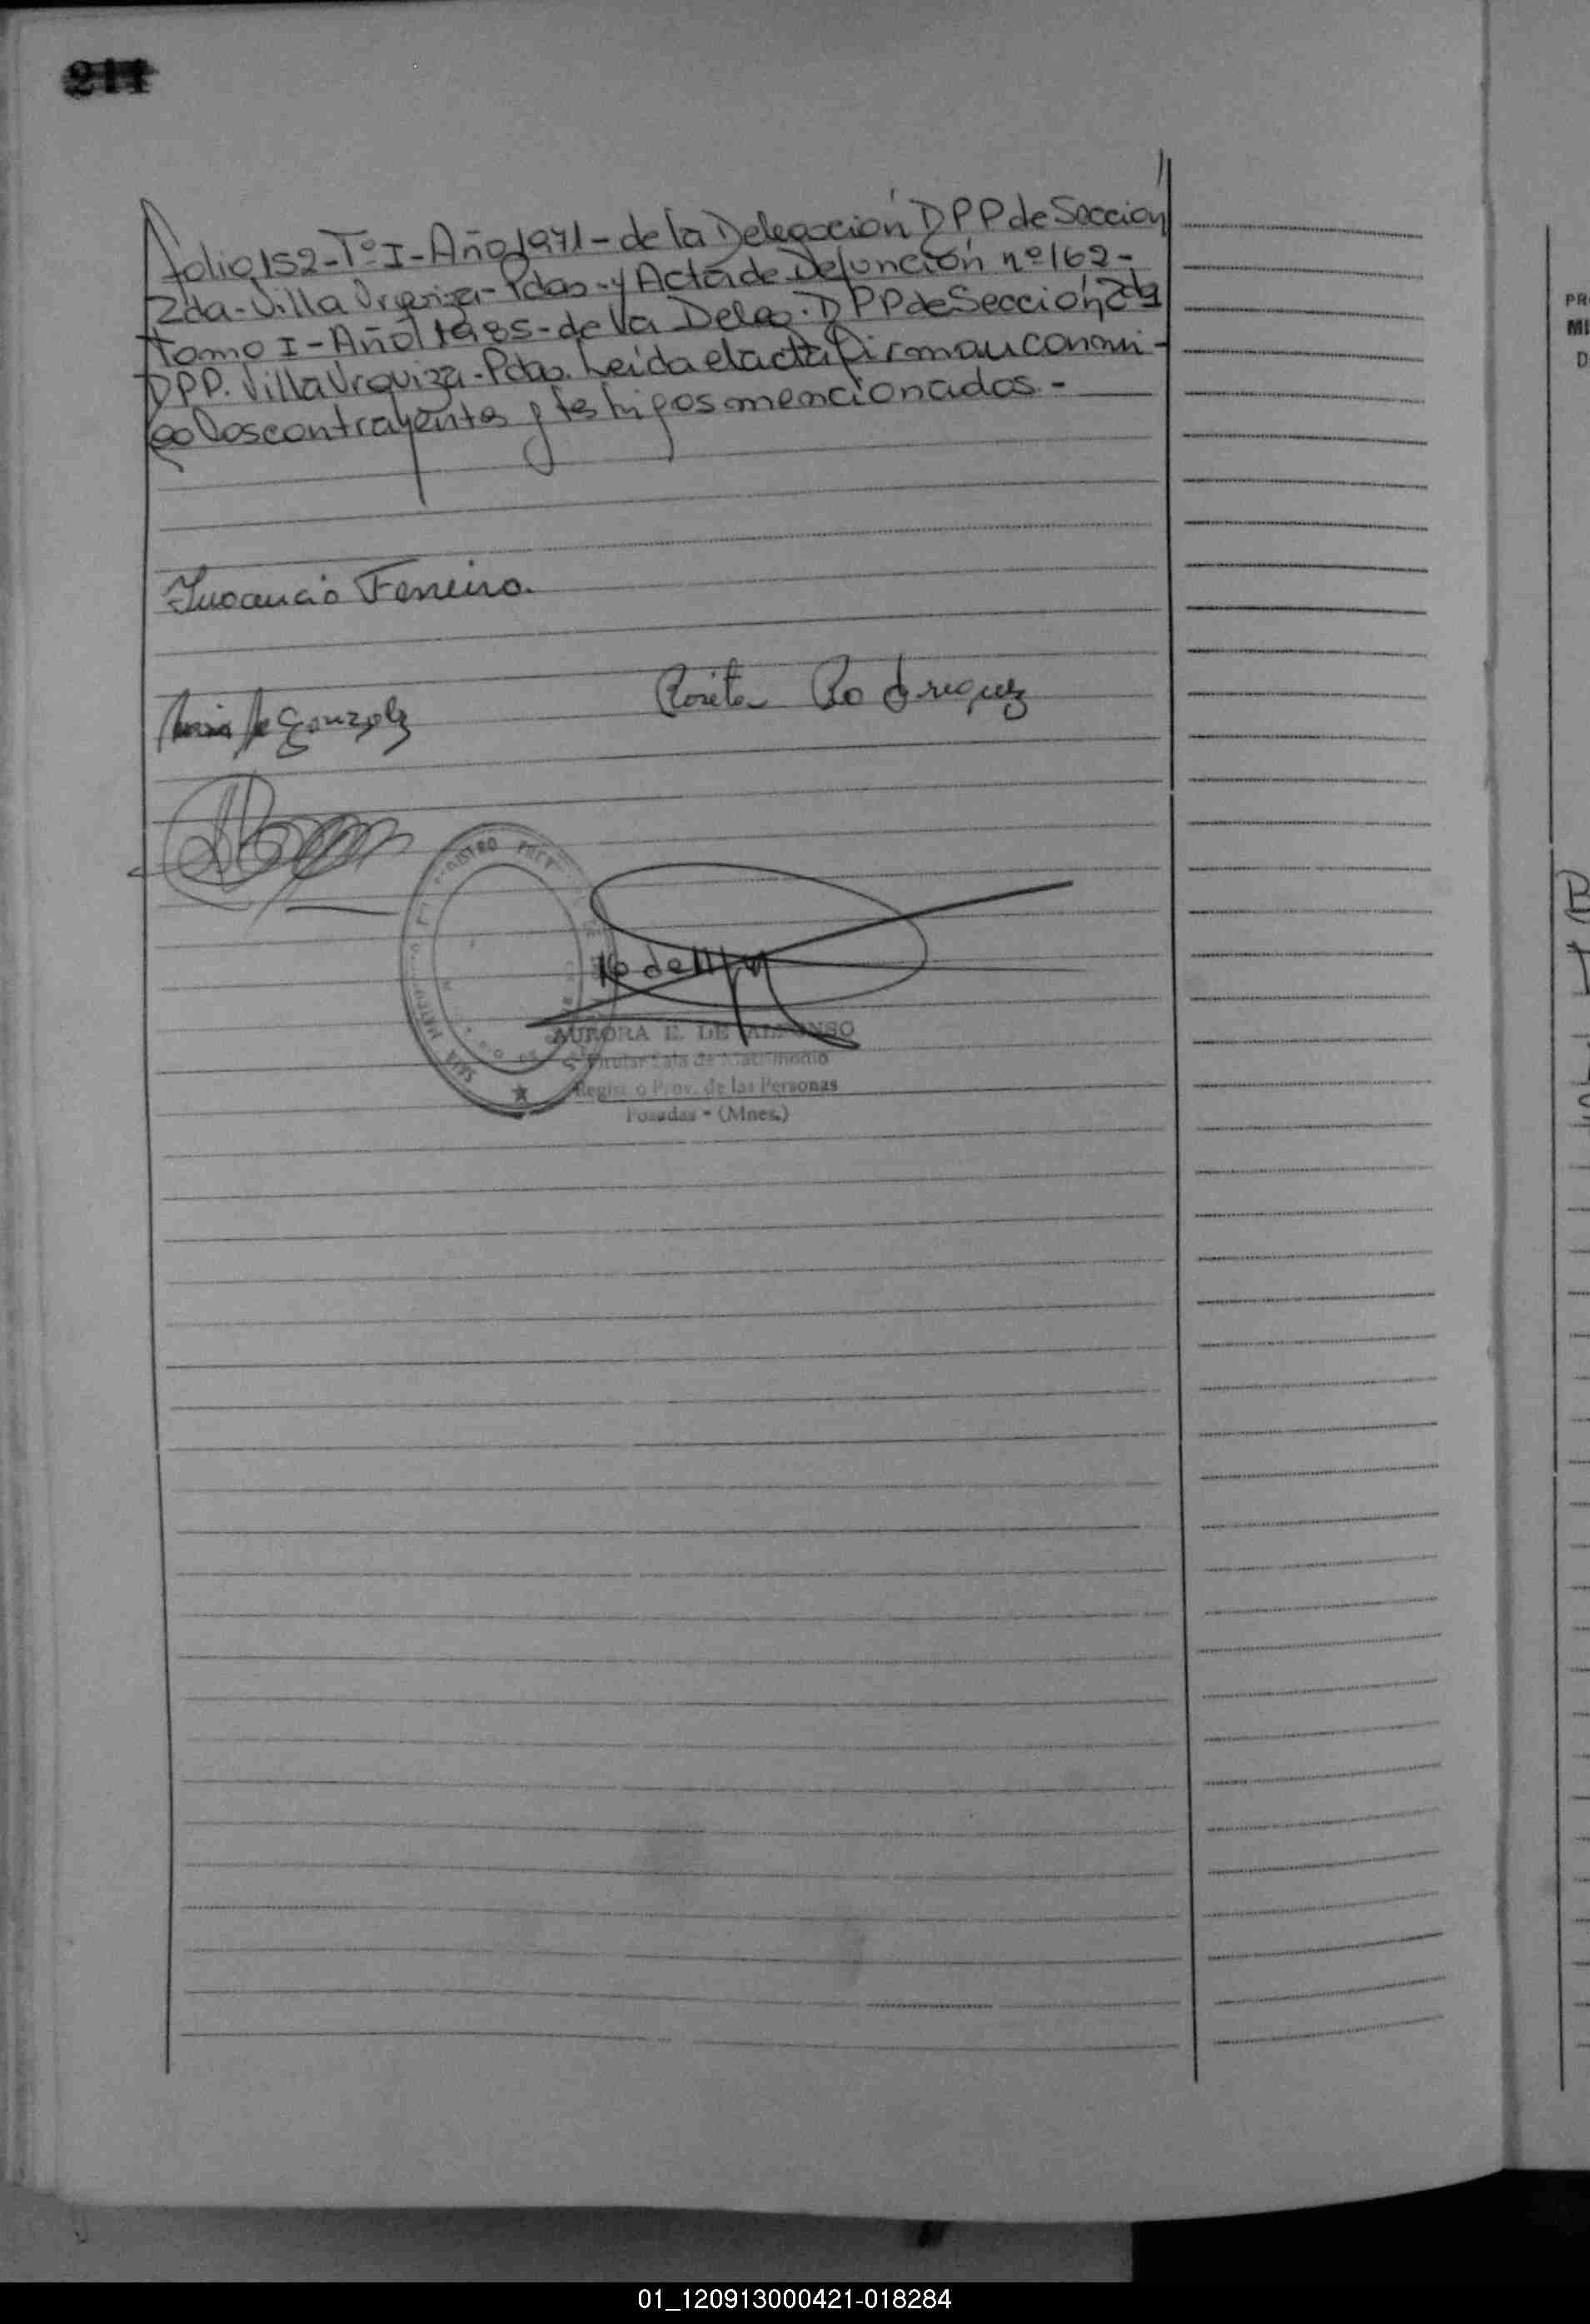 211
folio 152-Tº I-Año 1971-de la Delegación DPP de Sección
2da-Villa Urquiza-Pdas-y Acta de Defunción nº 162-
Tomo I-Año 1985-de la Deleg. DPP de Sección 2da
DPP. Villa Urquiza-Pdas. Leida el acta firman conmi-
go los contrayentes y testigos mencionados.-
Inocencio Ferreiro.
Rosita Rodriguez
Gonzalez
AURORA E. DE ALFONSO
Titular Sala de Matrimonio
Regist o Prov. de las Personas
Posadas - (Mnes.)
PR
MI
D
01_120913000421-018284